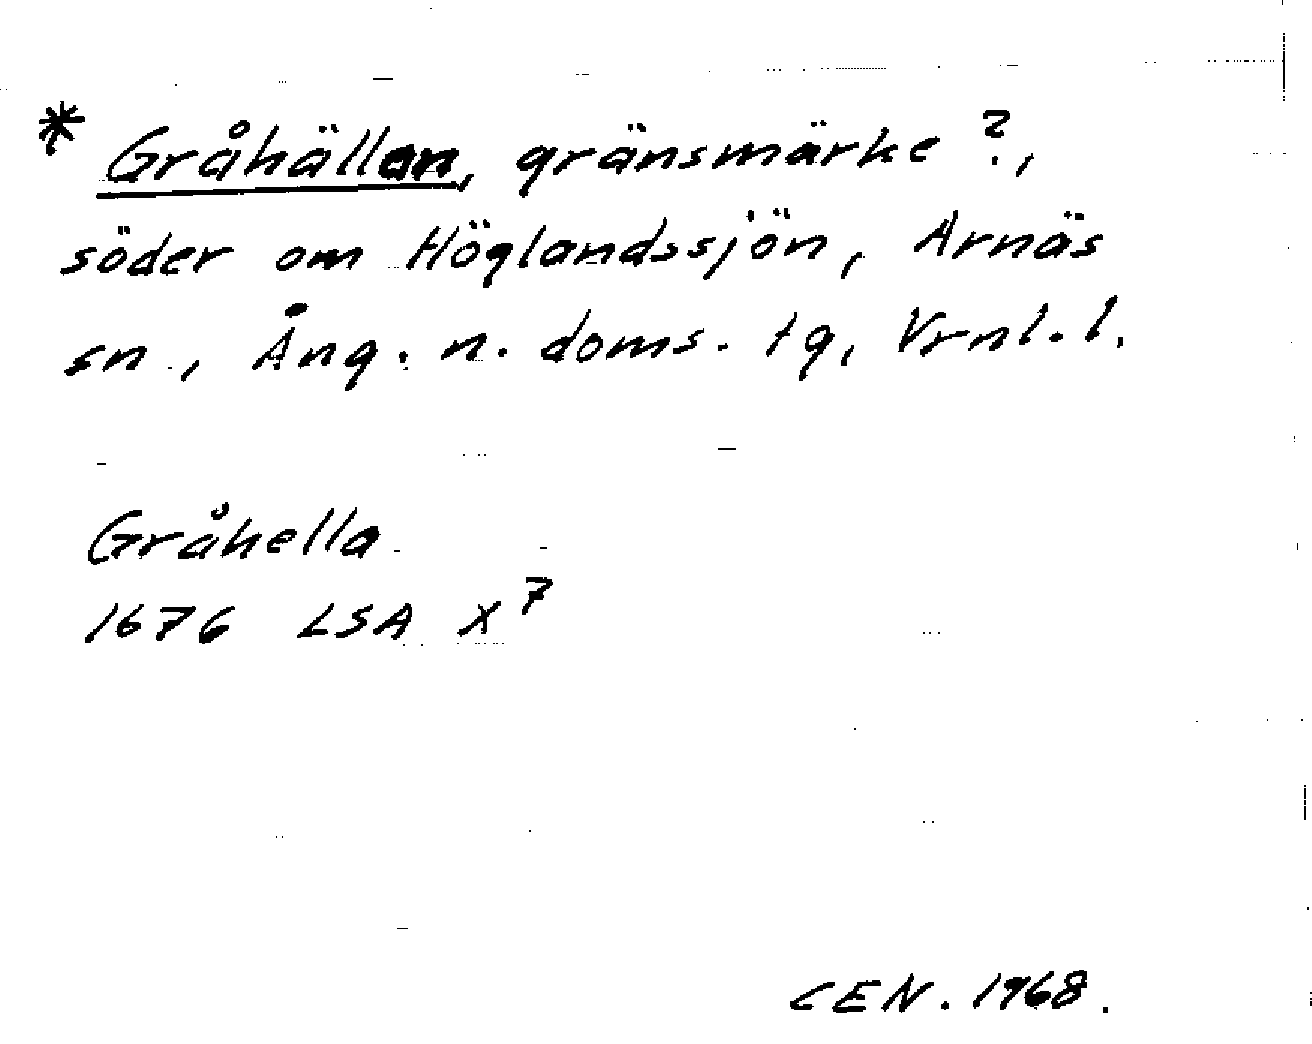 * Gråhällan, gränsmärke ?,
söder om Höglandssjön, Arnäs
sn., Ång. n. doms. tg, Vrnl. l.
Gråhella
1676 LSA X 7
CEN. 1968.